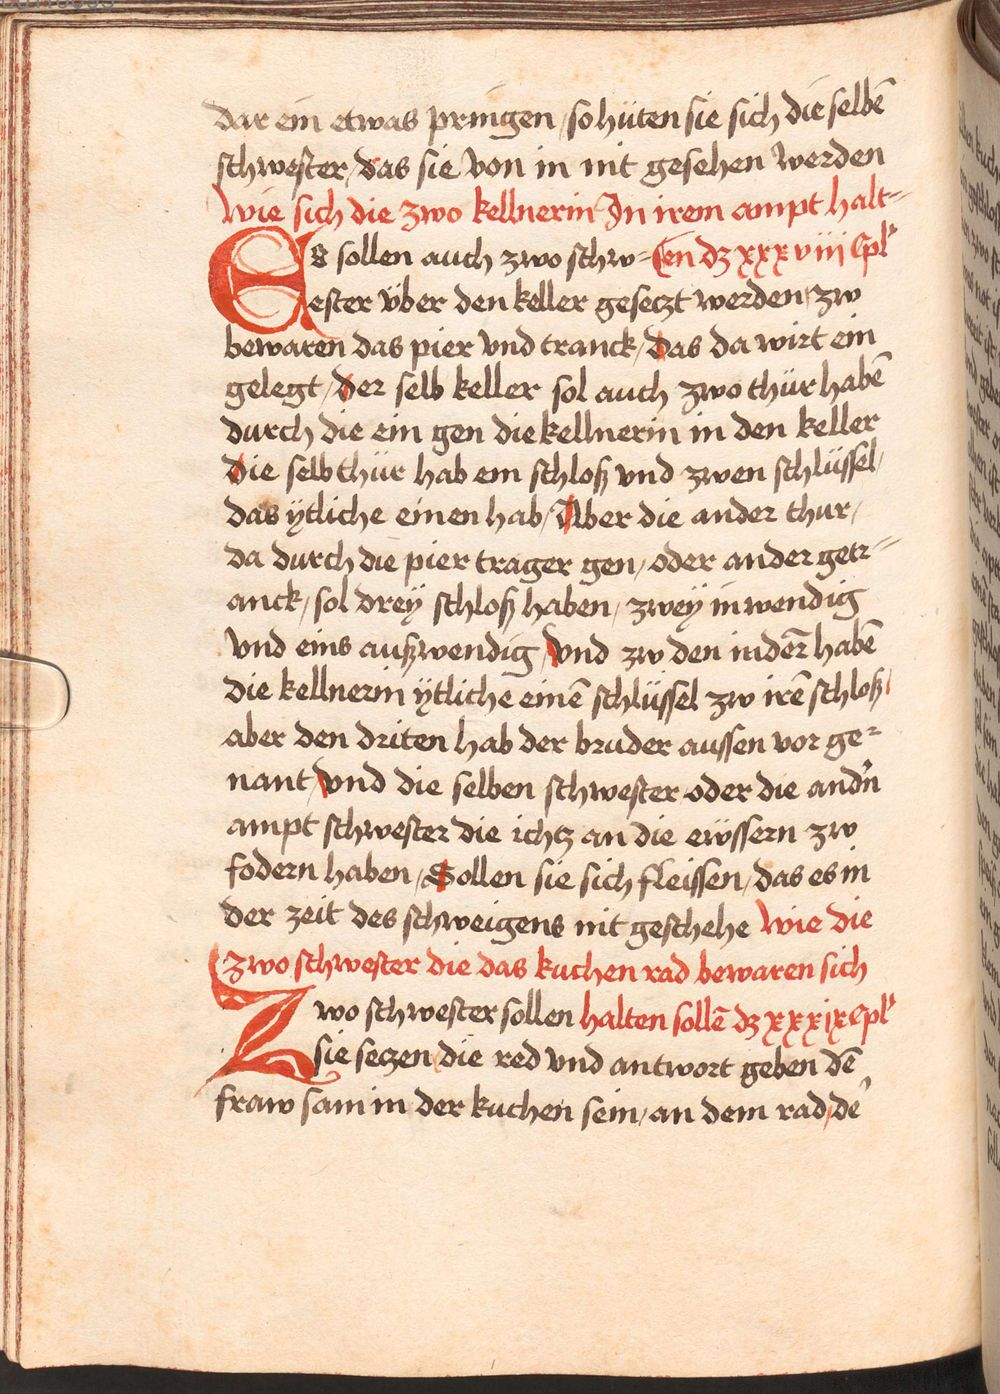 dar ein etwas pringen / so hüten sie sich die selbē
schwester / das sie von in nit gesehen werden
Wie sich die zwo kellnerin In irem ampt halt=
Es sollen auch zwo schw= ten dz xxxviii Cpl'
ester über den keller geseczt werden / zw
bewaren das pier vnd tranck / das da wirt ein
gelegt / der selb keller sol auch zwo thür habē
durch die ein gen die kellnerin in den keller
die selb thür hab ein schloß vnd zwen schlüssel /
das ytliche einen hab / Aber die ander thur /
da durch die pier trager gen / oder ander getr=
anck / sol drey schloß haben / zwey inwendig
vnd eins außwendig / vnd zw den indeꝛ̄ habē
die kellnerin ytliche einē schlüssel zw irē schloß /
aber den driten hab der bruder aussen vor ge=
nant / vnd die selben schwester oder die andn̄
ampt schwester die ichtz an die eüssern zw
fodern haben / Sollen sie sich fleissen / das es in
der zeit des schweigens nit geschehe Wie die
zwo schwester die das kuchen rad bewaren sich
Zwo schwester sollen halten sollē dz xxxix Cpl'
sie seczen die red vnd antwort geben dē
fraw sam in der kuchen sein / an dem rad / dē